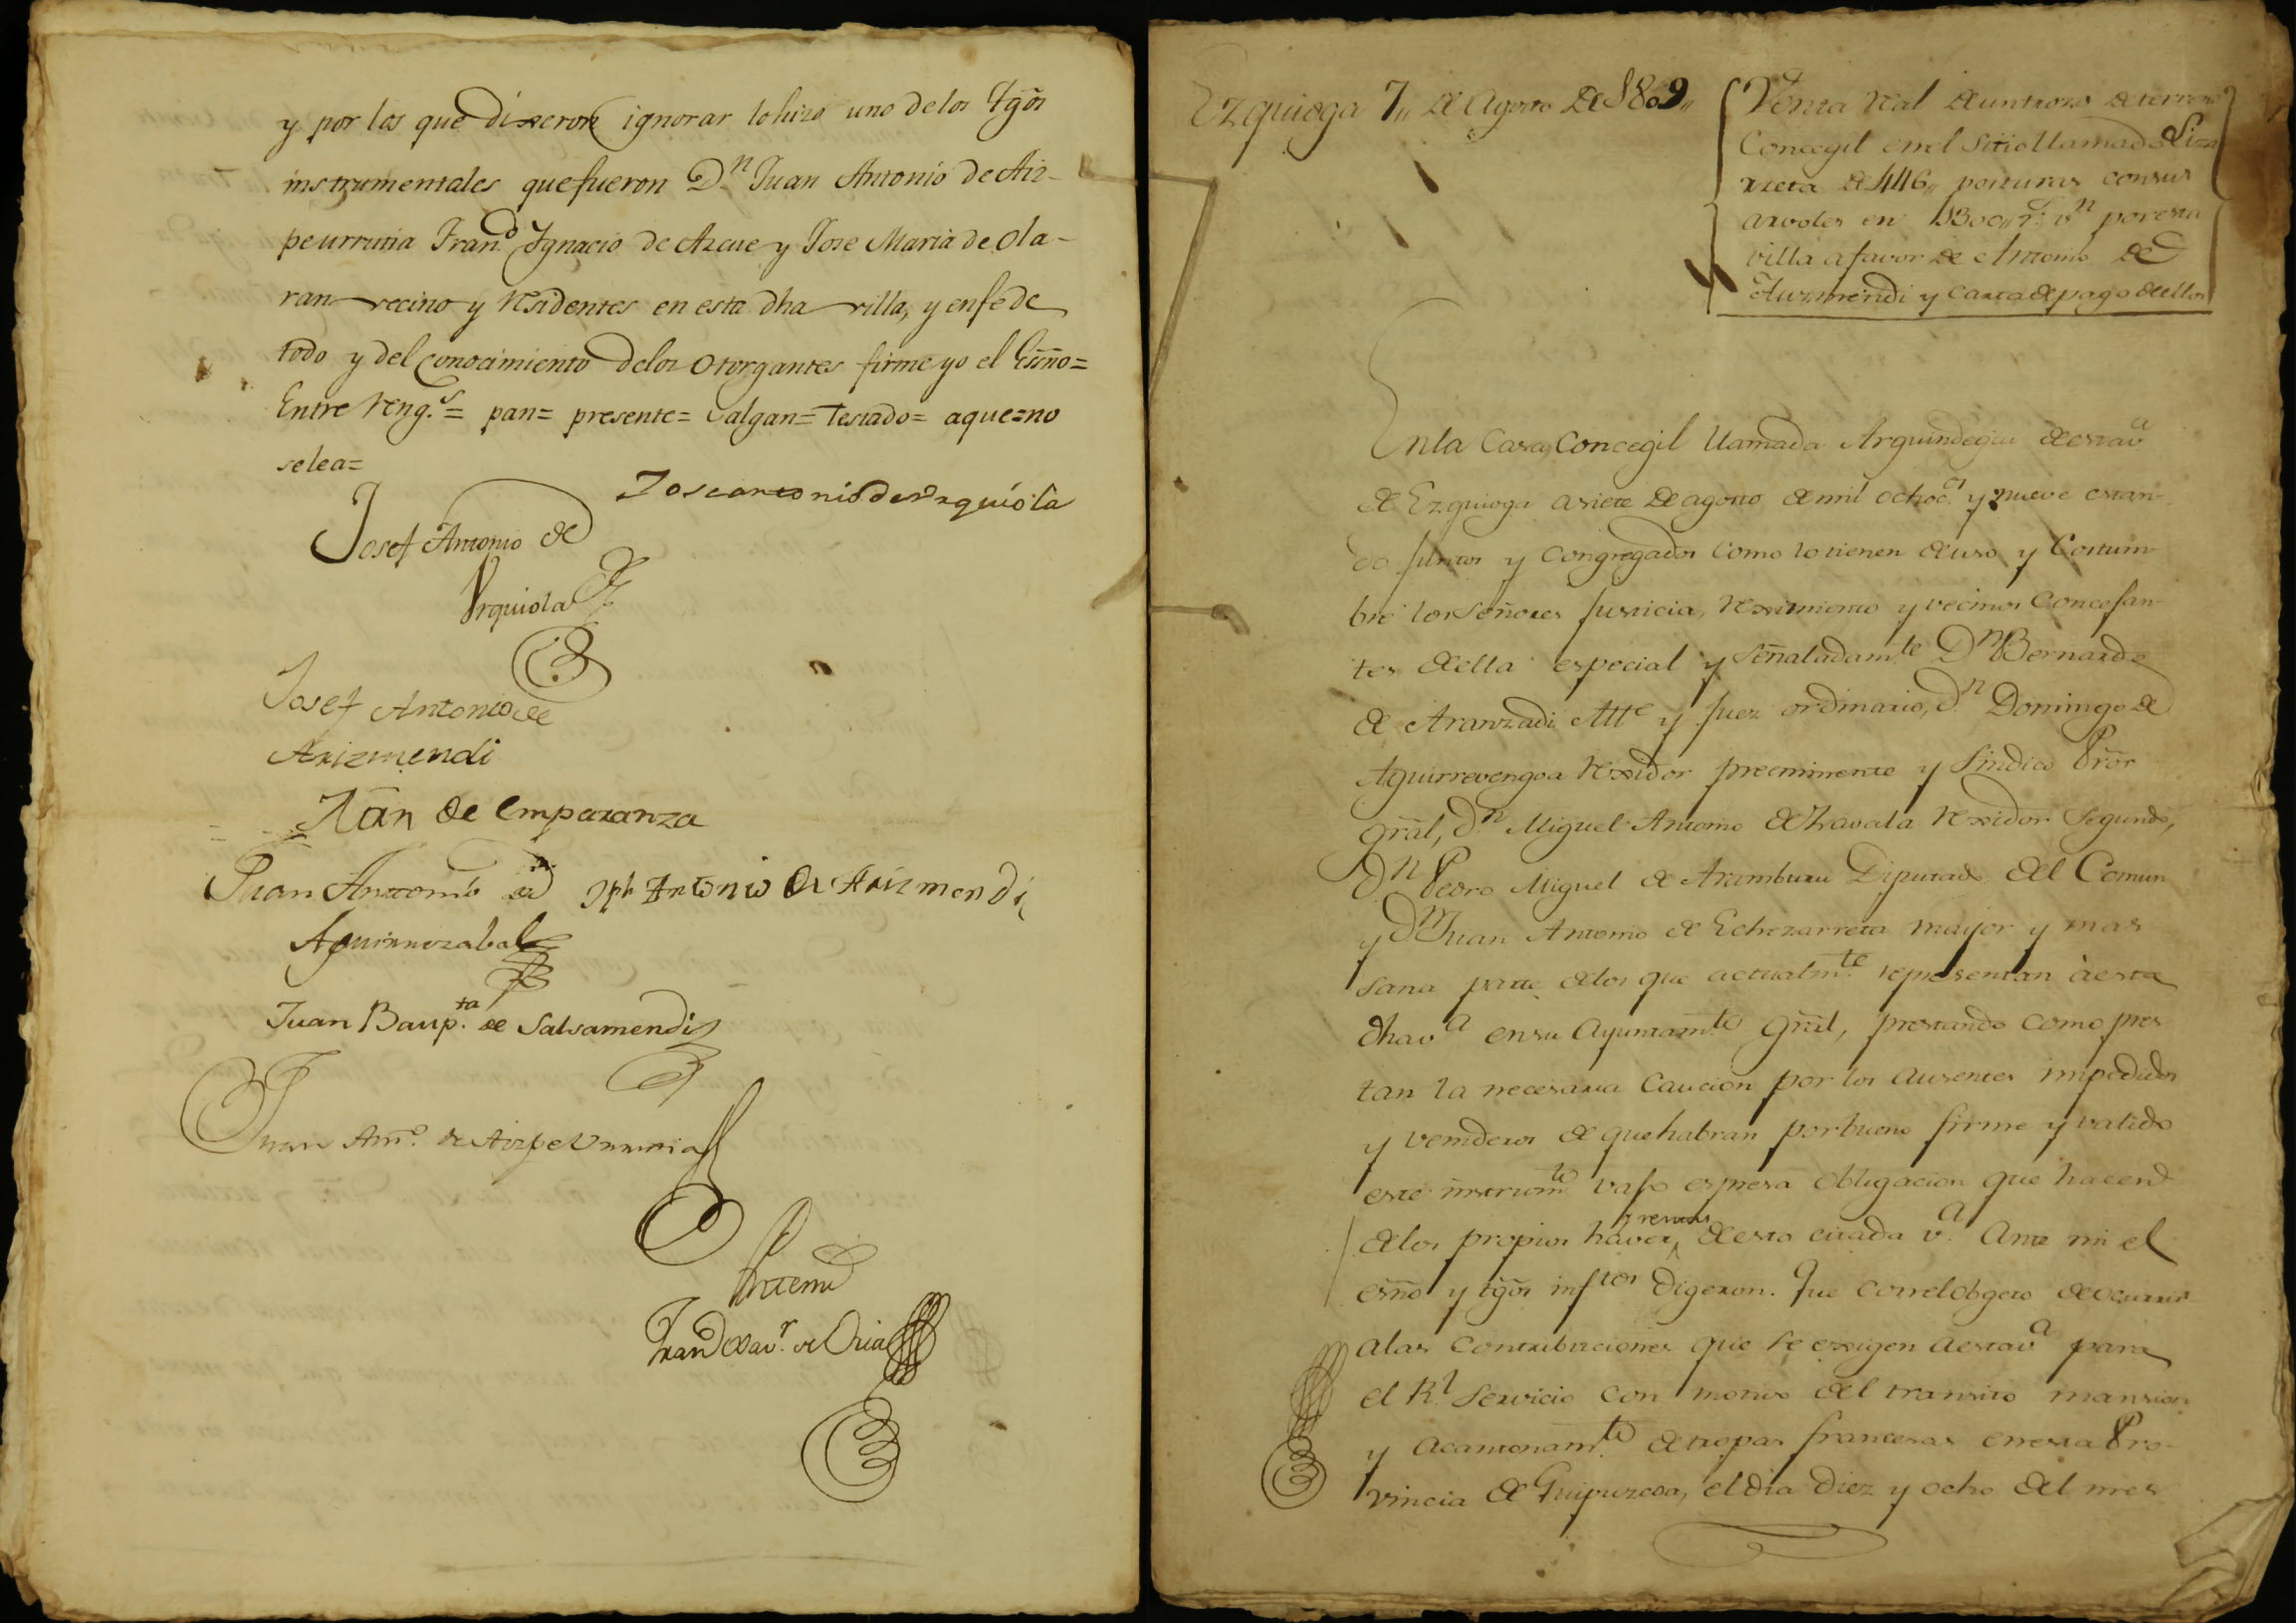 y por los que dixeron ignorar lo hizo uno de los tgõs
instrumentales que fueron D.n Juan Antonio de Aiz-
peurrutia Fran.co Ygnacio de Azcue y Jose Maria de Ola-
ran vecino y residentes en esta dha villa, y enfe de
todo y del conocimiento delos otorgantes firme yo el Essño=
Entre reng.s= pan= presente= valgan= testado= aque=no
selea=
Joseantonio de Urquiola
Josef Antonio de
Urquiola
Josef Antonio de
Arizmendi
Jũan de Emparanza
Juan Antonio de
Jph Antonio de Arizmendi
Aguirrezabal
Juan Baup.ta de Salsamendi
Juan Antt.o de Aizpeurrutia
Antemi
Fran.co Xav.r de Oria
Ezquioga 7,, de Agosto de 1809,,
Venta Real de un trozo de terreno
Concegil en el Sitio llamado Liza
rieta de 446,, posturas con sus
arvoles en 1300,, r.s v.n por esta
villa a favor de Antonio de
Auzmendi y carta de pago de ellos
En la Casa Concegil llamada Arguindegui de esta v.a
de Ezquioga a siete de agosto de mil ochoc.s y nueve estan-
do juntos y congregados como lo tienen de uso y Costum-
bre los Señores Justicia, Reximiento y vecinos Concejan-
tes de ella especial y señaladam.te D.n Bernardo
de Aranzadi Alt.e y Juez ordinario, d.n Domingo de
Aguirrevengoa Rexidor preeminente y Sindico Prõr
Grãl, d.n Miguel Antonio de Zavala Rexidor Segundo,
d.n Pedro Miguel de Aramburu Diputado del Comun
y d.n Juan Antonio de Echezarreta mayor y mas
sana parte de los que actualm.te representan à esta
dha v.a en su Ayuntam.to Grãl, prestando como pres
tan la necesaria Caucion por los Ausentes impedidos
y venideros de que habran por bueno firme y valido
este instrum.to vajo espresa obligacion que hacen
de los propios haver y rentas de esta citada v.a Ante mi el
esño y tgõs inf.tos Digeron. Que con el obgeto de ocurrir
a las Contribuciones que se exigen a esta v.a para
el R.l Servicio con motivo del transito mansion
y acantonam.to de tropas francesas en esta Pro-
vincia de Guipuzcoa, el dia diez y ocho del mes